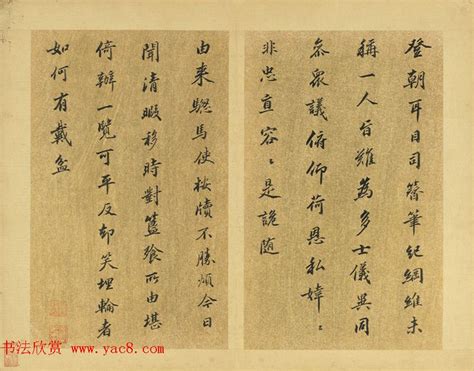 登朝耳目司簪筆紀綱維未
稱一人旨難為多士儀異同
叅眾議俯仰荷恩私婞〻
非忠直容〻是詭随
由来驄馬使按牘不勝煩今日
聞清暇移時對簋飱所由堪
倚辦一覽可平反却笑埋輪者
如何有戴盆
书法欣赏 www.yac8.com